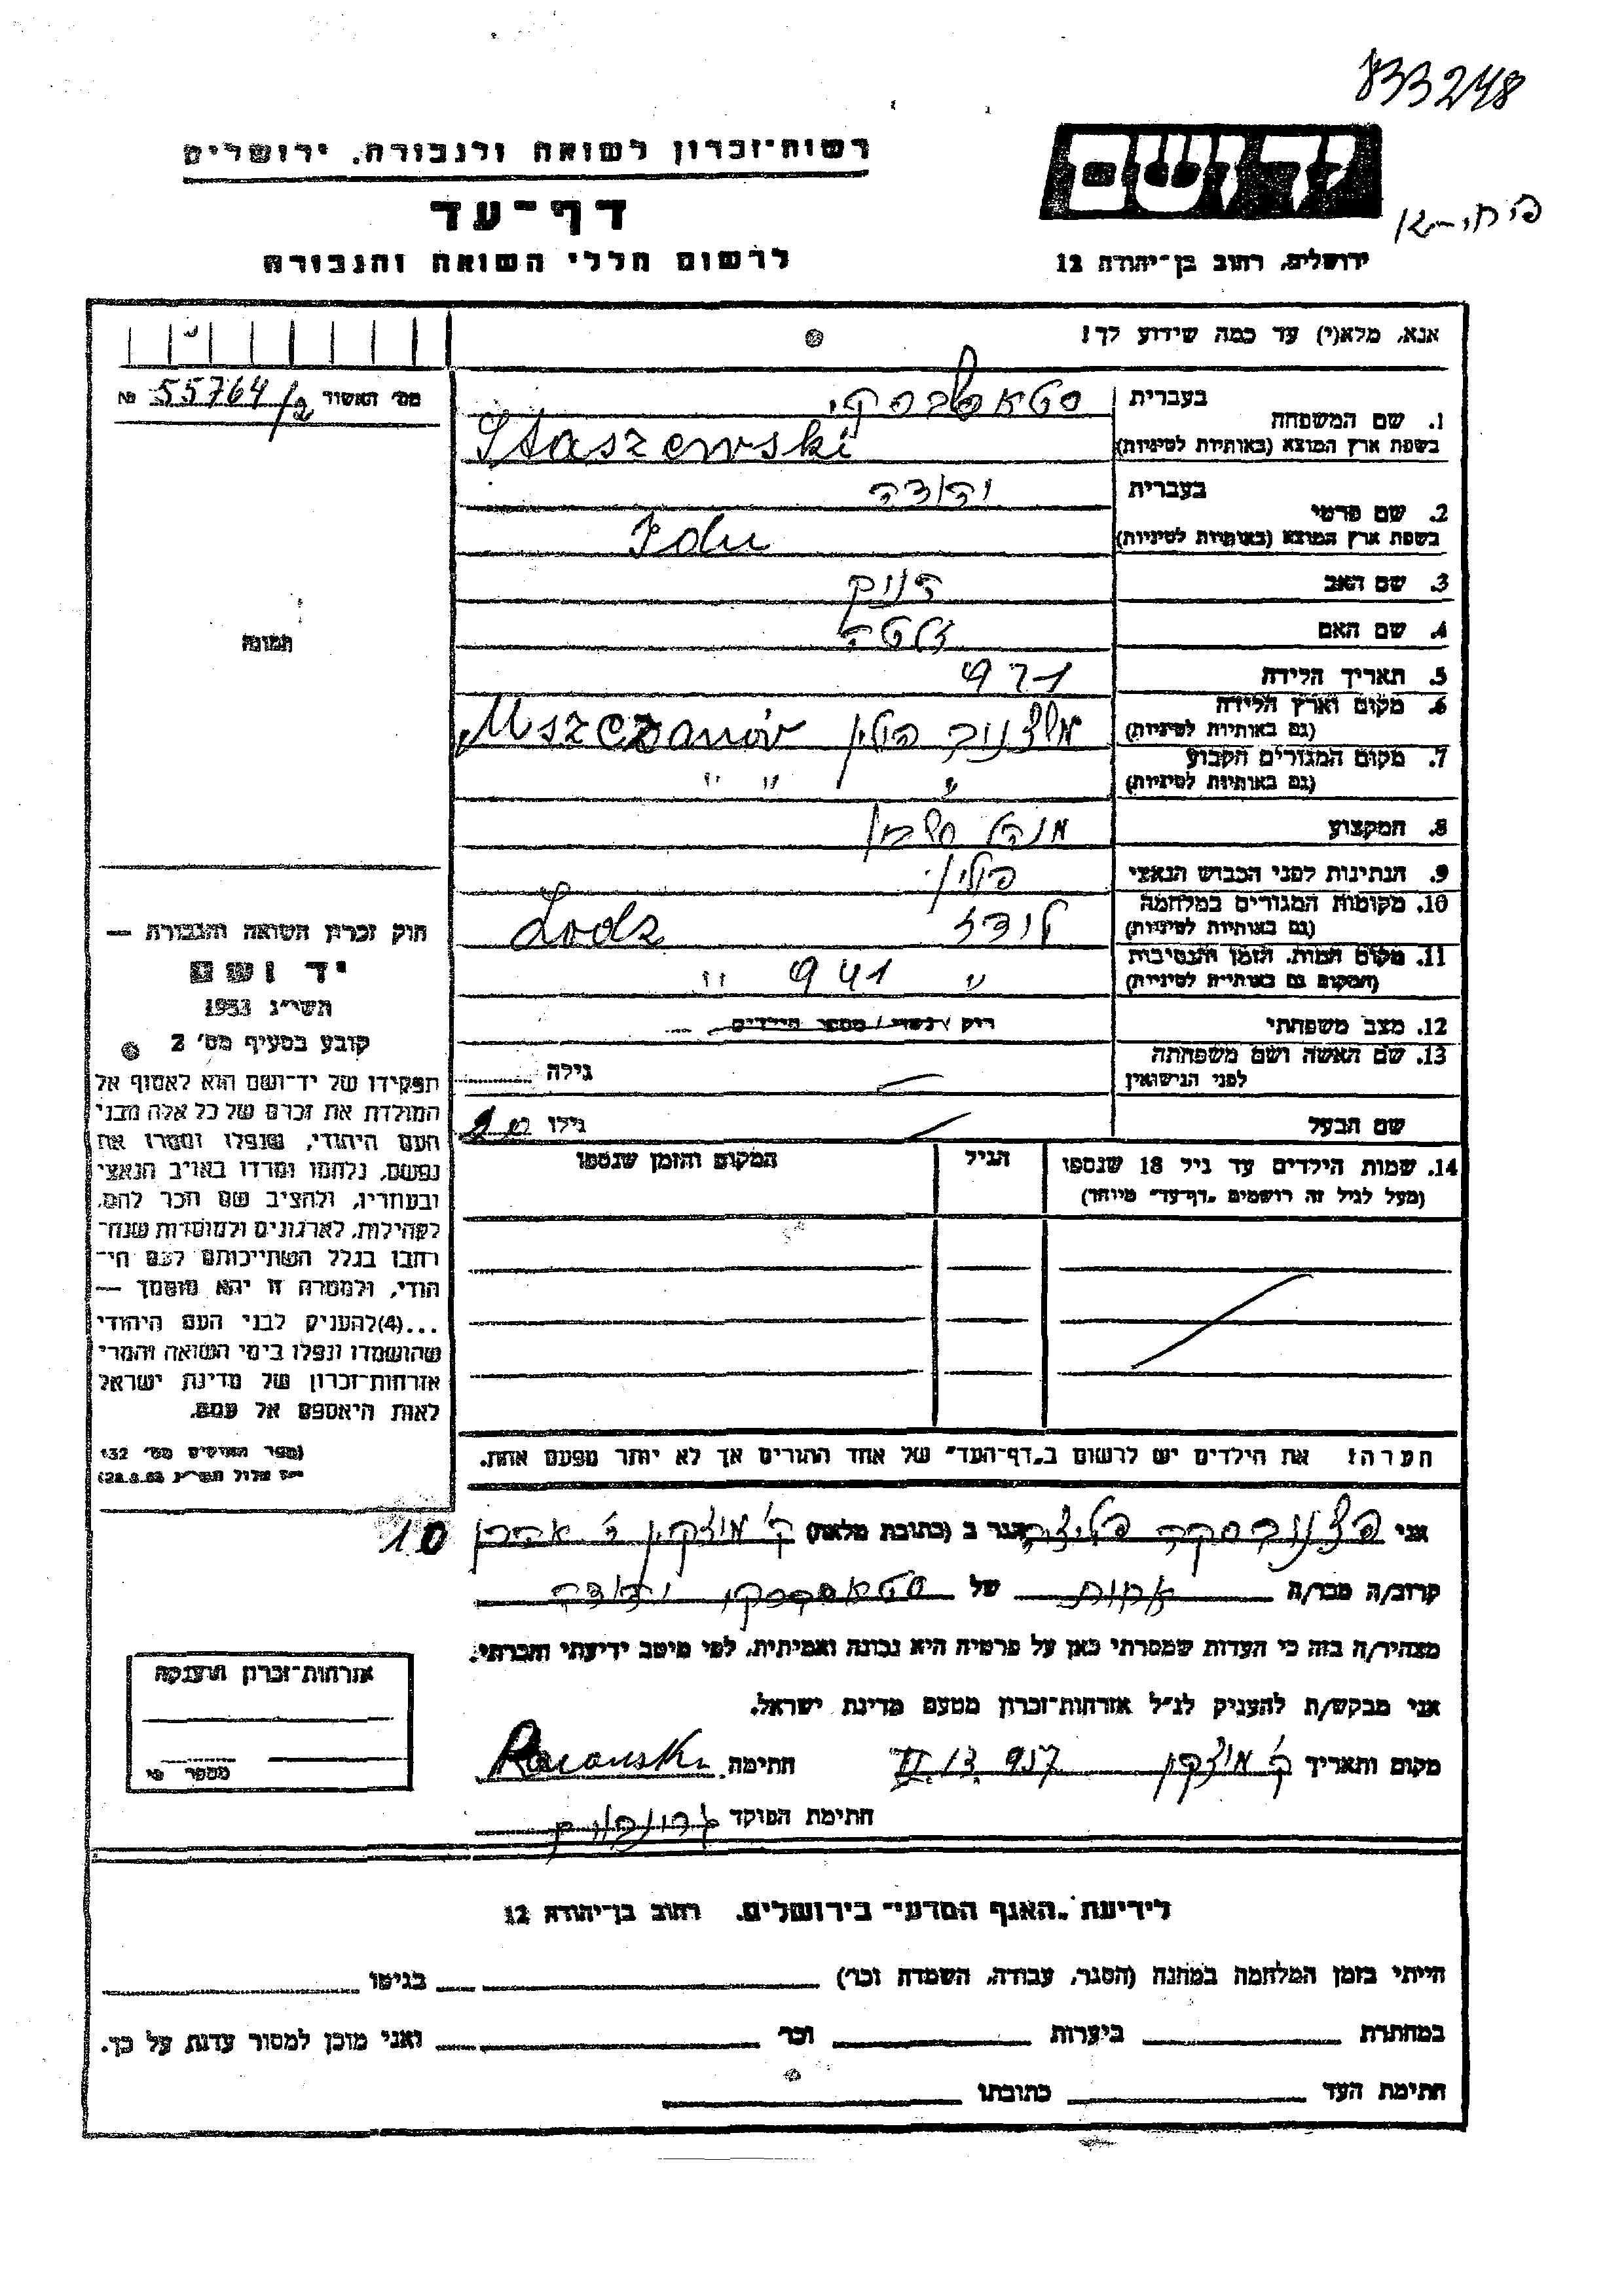 833248
רשות-זכרון לשואה ולגבורה, ירושלים
יד ושם
דף-עד
לרשום חללי השואה והגבורה
ירושלים, רחוב בן-יהודה 12
אנא, מלא(י) עד כמה שידוע לך!
מס׳ האשור 55764/2 №
1. שם המשפחה
בעברית
בשפת ארץ המוצא (באותיות לטיניות) Staszewski
2. שם פרטי
בעברית יהודה
בשפת ארץ המוצא (באותיות לטיניות)
3. שם האב
4. שם האם
5. תאריך הלידה 921
6. מקום וארץ הלידה
(גם באותיות לטיניות) פולין Mszczanów
7. מקום המגורים הקבוע
(גם באותיות לטיניות) " " "
8. המקצוע מנהל חשבון
9. הנתינות לפני הכבוש הנאצי פולין
10. מקומות המגורים במלחמה
(גם באותיות לטיניות) לודז Lodz
11. מקום המות, הזמן והנסיבות
(המקום גם באותיות לטיניות) " 941 "
12. מצב משפחתי רוק / נשוי / מספר הילדים
13. שם האשה ושם משפחתה
לפני הנישואין גילה
שם הבעל גילו 20
14. שמות הילדים עד גיל 18 שנספו
(מעל לגיל זה רושמים „דף-עד" מיוחד)
הגיל
המקום והזמן שנספו
הערה: את הילדים יש לרשום ב„דף-העד" של אחד ההורים אך לא יותר מפעם אחת.
תמונה
חוק זכרון השואה והגבורה —
יד ושם
תשי״ג 1953
קובע בסעיף מס׳ 2
תפקידו של יד-ושם הוא לאסוף אל
המולדת את זכרם של כל אלה מבני
העם היהודי, שנפלו ומסרו את
נפשם, נלחמו ומרדו באויב הנאצי
ובעוזריו, ולהציב שם וזכר להם,
לקהילות, לארגונים ולמוסדות שנח-
רבו בגלל השתייכותם לעם הי-
הודי, ולמטרה זו יהא מוסמך —
...(4) להעניק לבני העם היהודי
שהושמדו ונפלו בימי השואה והמרי
אזרחות-זכרון של מדינת ישראל
לאות היאספם אל עמם.
(ספר החוקים מס׳ 132
י״ז אלול תשי״ג 28.8.53)
אני הגר ב (כתובת מלאה) ק׳ מוצקין
10
קרוב/ה מכר/ה אחות של יהודה
מצהיר/ה בזה כי העדות שמסרתי כאן על פרטיה היא נכונה ואמיתית, לפי מיטב ידיעתי והכרתי.
אני מבקש/ת להעניק לנ״ל אזרחות-זכרון מטעם מדינת ישראל.
מקום ותאריך ק׳ מוצקין 957 חתימה
חתימת הפוקד
אזרחות-זכרון הוענקה
מספר
לידיעת „האגף המדעי" בירושלים, רחוב בן-יהודה 12
הייתי בזמן המלחמה במחנה (הסגר, עבודה, השמדה וכו׳) בגיטו
במחתרת ביערות וכו׳ ואני מוכן למסור עדות על כך.
חתימת העד כתובתו